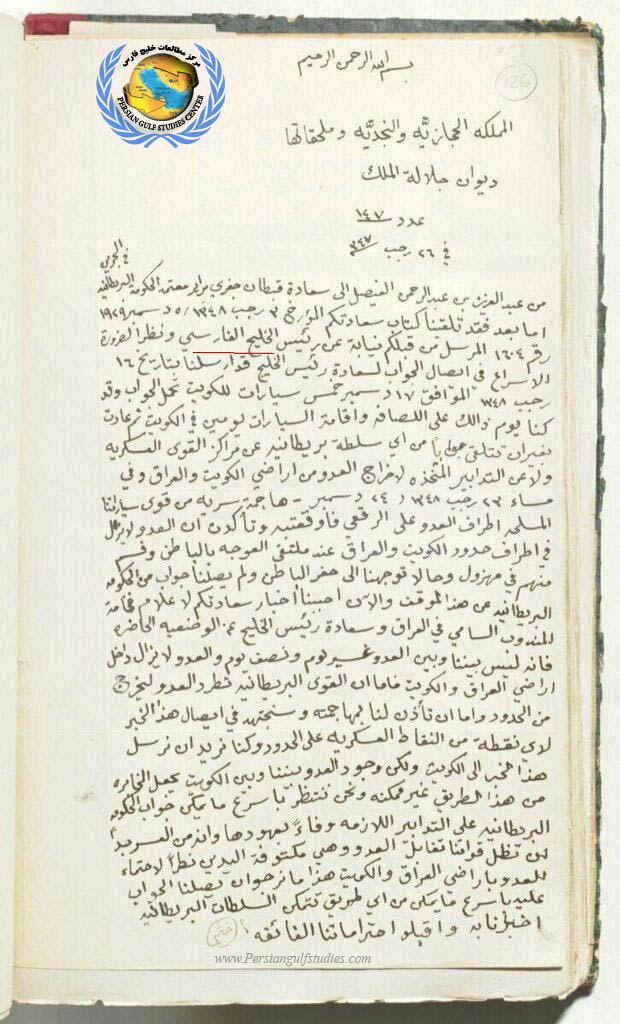 مركز مطالعات خليج فارس
PERSIAN GULF STUDIES CENTER
بسم الله الرحمن الرحيم
126
المملكه الحجازيَّه والنجديَّه وملحقاتها
ديوان جلالة الملك
عدد ١٤٧
في ٢٦ رجب ٣٤٧
من عبد العزيز بن عبد الرحمن الفيصل الى سعادة قبطان معتمد الحكومة البريطانية
اما بعد فقد تلقينا كتاب سعادتكم المؤرخ ٣ رجب ١٣٤٨ / ٥ دسمبر ١٩٢٩
رقم ١٦٠٤ المرسل من قبلكم نيابة عن رئيس الخليج الفارسي ونظرا لضرورة
الاسراع في ايصال الجواب لسعادة رئيس الخليج فقد ارسلنا بتاريخ ١٦
رجب ١٣٤٨ الموافق ١٧ دسمبر خمس سيارات للكويت تحمل الجواب وقد
كنا يوم ذالك على اللصافه واقامة السيارات يومين في الكويت ثم عادت
بغيران تتلقى جواباً من اي سلطة بريطانيه عن مراكز القوى العسكريه
ولا عن التدابير المتخذه لاخراج العدو من اراضي الكويت والعراق وفي
مساء ٢٣ رجب ١٣٤٨ / ٢٤ دسمبر هاجمة سريه من قوى سياراتنا
المسلحه اطراف العدو على الرقعي فاوقعت به وتأكدن ان العدو لايزال
في اطراف حدود الكويت والعراق عند ملتقى العوجه بالباطن وقسم
منهم في مهزول وحالا توجهنا الى حفر الباطن ولم يصلنا جواب من الحكومه
البريطانيه عن هذا الموقف والآن احببنا اخبار سعادتكم لاعلام فخامة
المندوب السامي في العراق وسعادة رئيس الخليج الوضعيه الحاضره
فانه ليس بيننا وبين العدو غير يوم ونصف يوم والعدو لايزال داخل
اراضي العراق والكويت فاما ان القوى البريطانيه تطرد العدو ليخرج
من الحدود واما ان تأذن لنا بمهاجمته وسنجتهد في ايصال هذا الخبر
لاي نقطة من النقاط العسكريه على الحدود وكنا نريد ان نرسل
هذا الخبر الى الكويت ولكن وجود العدو بيننا وبين الكويت يجعل المخابره
من هذا الطريق غير ممكنه ونحن ننتظر باسرع مايمكن جواب الحكومه
البريطانيه على التدابير اللازمه وفاءً بعهودها وانه من
ان تظل قواتنا تقابل العدو وهي مكتوفة اليدين نظراً لاحتماء
العدو باراضي العراق والكويت هذا ما نرجو ان يصلنا الجواب
عليه باسرع مايمكن من اي طريق تتمكن السلطات البريطانيه
اخبارنا به واقبلو احتراماتنا الفائقه
ختم
www.Persiangulfstudies.com